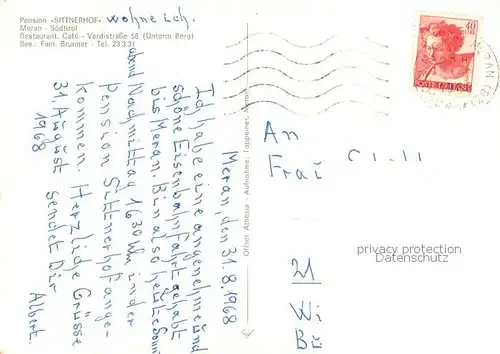 Pension «SITTNERHOF» wohne ich.
Meran - Südtirol
Restaurant, Café - Verdistraße 58 (Unterm Berg)
Bes.: Fam. Brunner - Tel. 23 3 31
Meran, den 31.8.1968
Ich habe eine angenehme und
schöne Eisenbahnfahrt gehabt
bis Meran. Bin also heute Sonn
abend Nachmittag 16³⁰ Uhr in der
Pension Sittnerhof ange-
kommen. Herzliche Grüsse
31. August sendet Dir
1968 Albert.
Offset Athesia - Aufnahme: Tappeiner, Meran
40
LIRE
POSTE ITALIANE
MERAN
An
Frau
21
Wi
Bü
privacy protection
Datenschutz